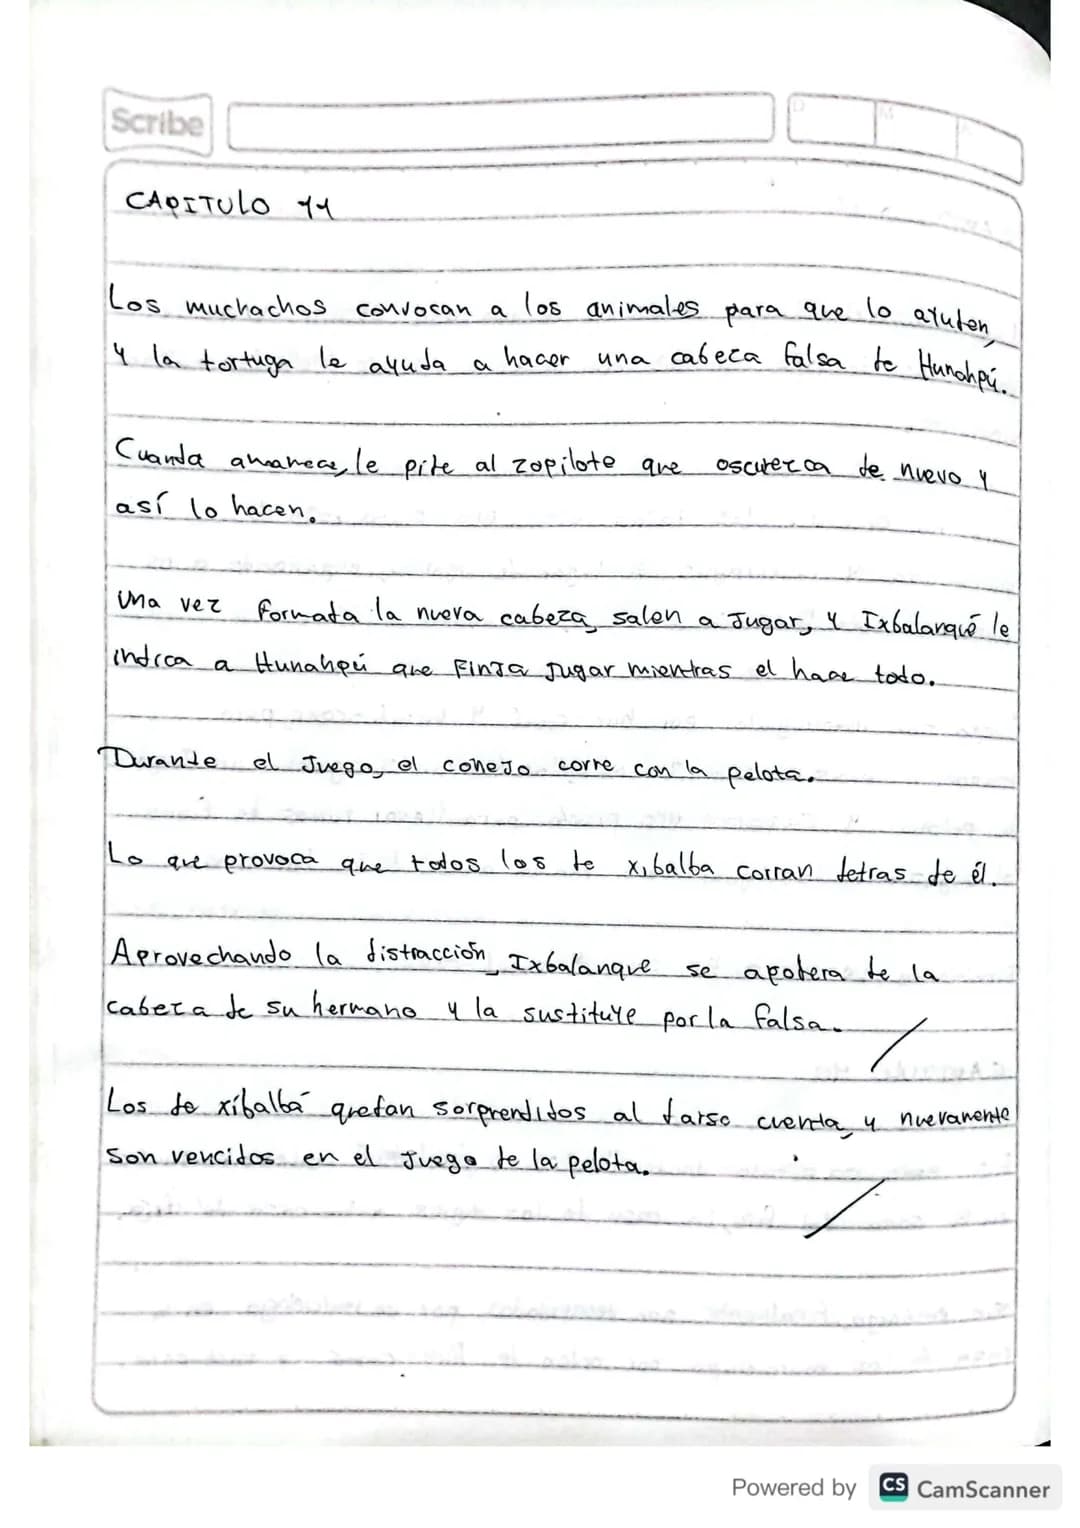 Scribe
D
M
A
CAPITULO 11
Los muchachos convocan a los animales para que lo ayuden,
y la tortuga le ayuda a hacer una cabeza falsa de Hunahpú.
Cuanda amanece, le pide al zopilote que oscurezca de nuevo y
así lo hacen.
Una vez formada la nueva cabeza, salen a Jugar, y Ixbalanqué le
indica a Hunahpú que Finja Jugar mientras el hace todo.
Durante el Juego, el conejo corre con la pelota.
Lo que provoca que todos los de xibalba corran detras de él.
Aprovechando la distracción, Ixbalanque se apodera de la
cabeza de su hermano y la sustituye por la falsa.
Los de xibalbá quedan sorprendidos al darse cuenta, y nuevamente
son vencidos en el Juego de la pelota.
Powered by CS CamScanner